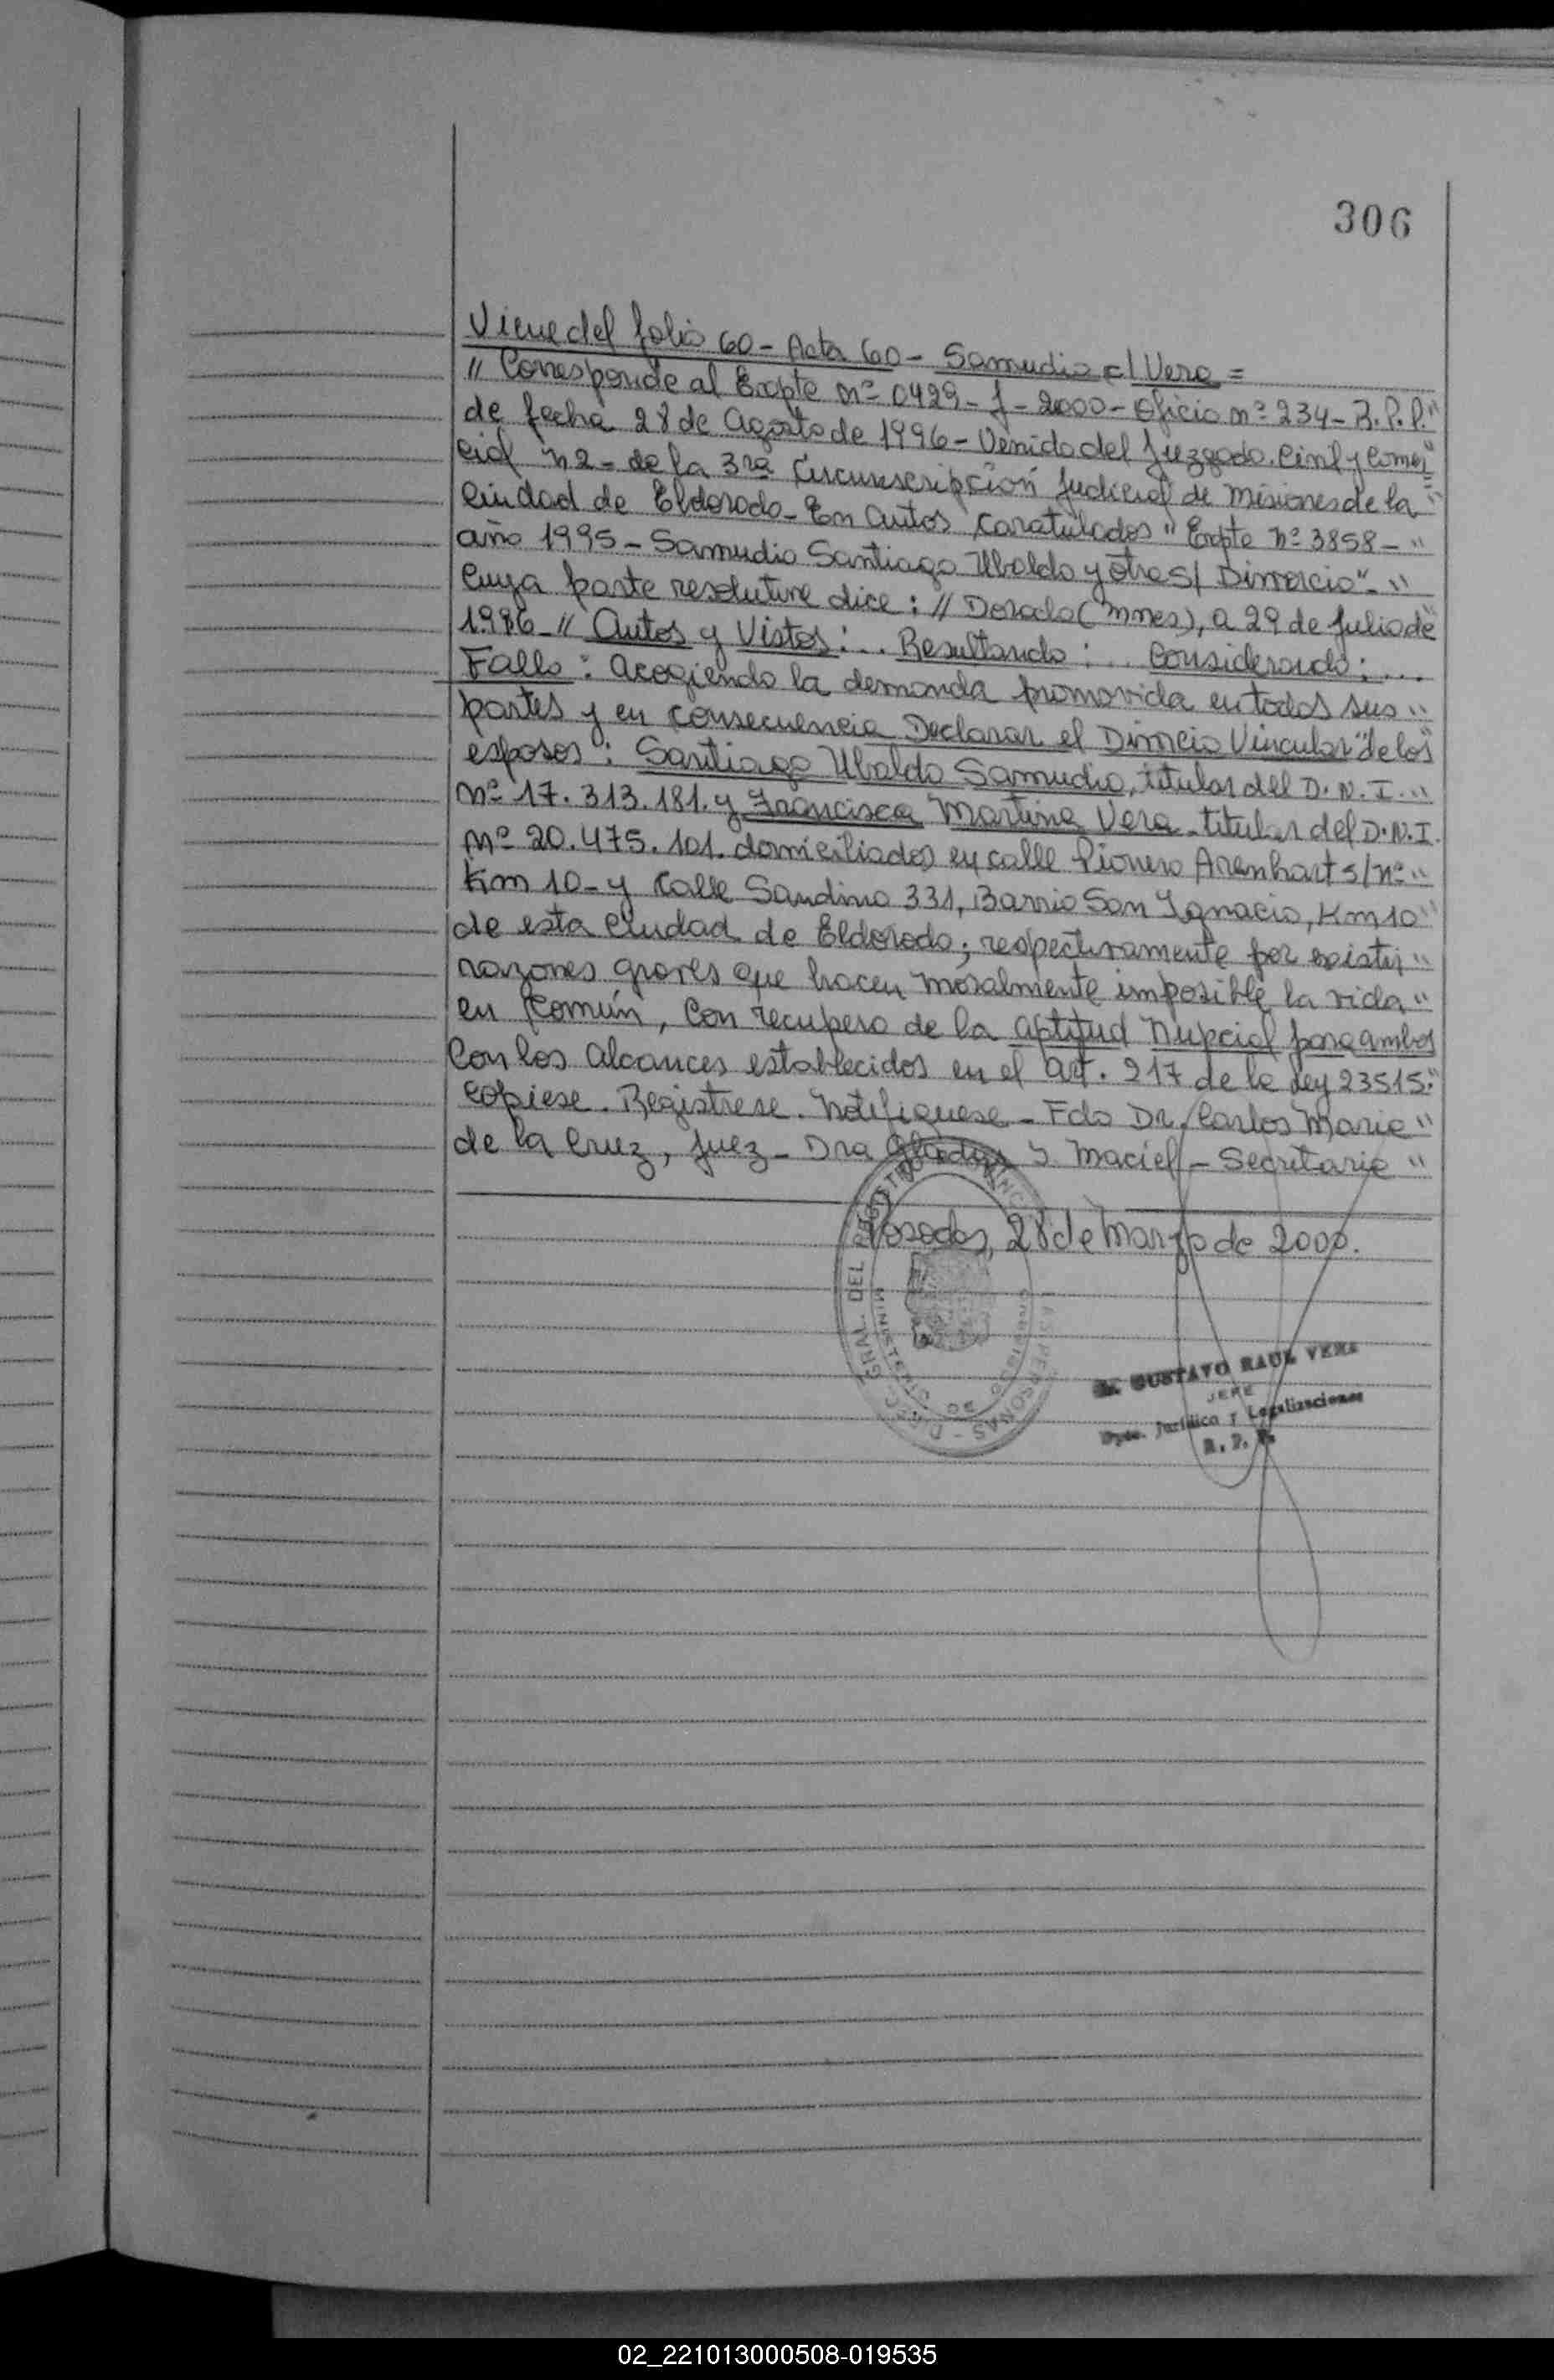 306
Viene del folio 60 - Acta 60 - Samudio c/ Vera =
" Corresponde al Expte nº 0429 - J - 2000 - Oficio nº 234 - R.P.P."
de fecha 28 de Agosto de 1996 - Venido del Juzgado. Civil y Comer"
cial n 2 - de la 3ra Circunscripción Judicial de Misiones de la "
Ciudad de Eldorado - En autos caratulados " Expte nº 3858 - "
año 1995 - Samudio Santiago Ubaldo y otra s/ Divorcio" - "
Cuya parte resolutive dice: // Dorado (Mnes), a 29 de Julio de"
1996 - // Autos y Vistos: .. Resultando: ... Considerando: ...
Fallo: Acogiendo la demanda promovida en todos sus "
partes y en consecuencia Declarar el Divorcio Vincular "de los"
esposos: Santiago Ubaldo Samudio, titular del D.N.I... "
nº 17.313.181. y Francisca Martina Vera - titular del D.N.I.
nº 20.475.101. domiciliados en calle Pionero Arenhart s/nº "
Km 10 - y Calle Sandino 331, Barrio San Ignacio, Km 10 "
de esta Ciudad de Eldorado; respectivamente por existir "
razones graves que hacen moralmente imposible la vida "
en Común, Con recupero de la aptitud Nupcial para ambos
Con los alcances establecidos en el art. 217 de la Ley 23515."
Copiese. Registrese. Notifiquese - Fdo Dr. Carlos Marie "
de la Cruz, Juez - Dra Gladys S Maciel - Secretarie "
Posadas, 28 de Marzo de 2000.
GRAL. DEL
LAS PERSONAS -
GUSTAVO RAUL VERA
JEFE
Dpto. Jurídica y Legalizaciones
R. P. P.
02_221013000508-019535